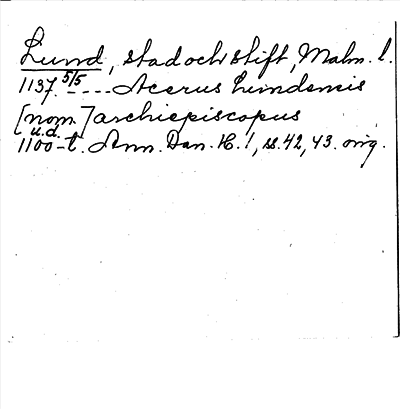 Lund, stad och stift, Malm. l.
1137 5/5 --- Acerus Lundensis
[nom.] archiepiscopus
u.d.
1100-t. Ann. Dan. H. 1, ss. 42, 43. orig.